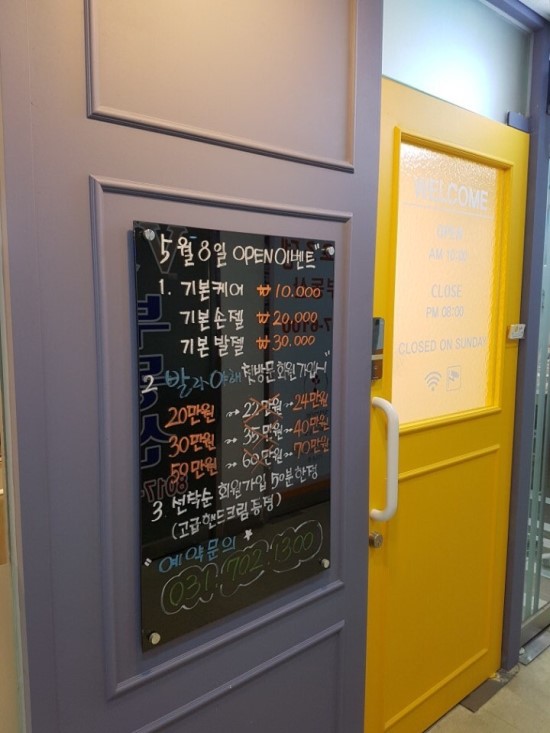 "5월8일 OPEN이벤트"
1. 기본케어 ₩10.000
기본손젤 ₩20,000
기본발젤 ₩30.000
2 발라야해 첫방문회원가입시
20만원 → 22만원 → 24만원
30만원 → 35만원 → 40만원
50만원 → 60만원 → 70만원
3 선착순 회원가입 50분한정
(고급핸드크림증정)
"예약문의
031.702.1300
WELCOME
OPEN
CLOSE
PM 08:00
CLOSED ON SUNDAY